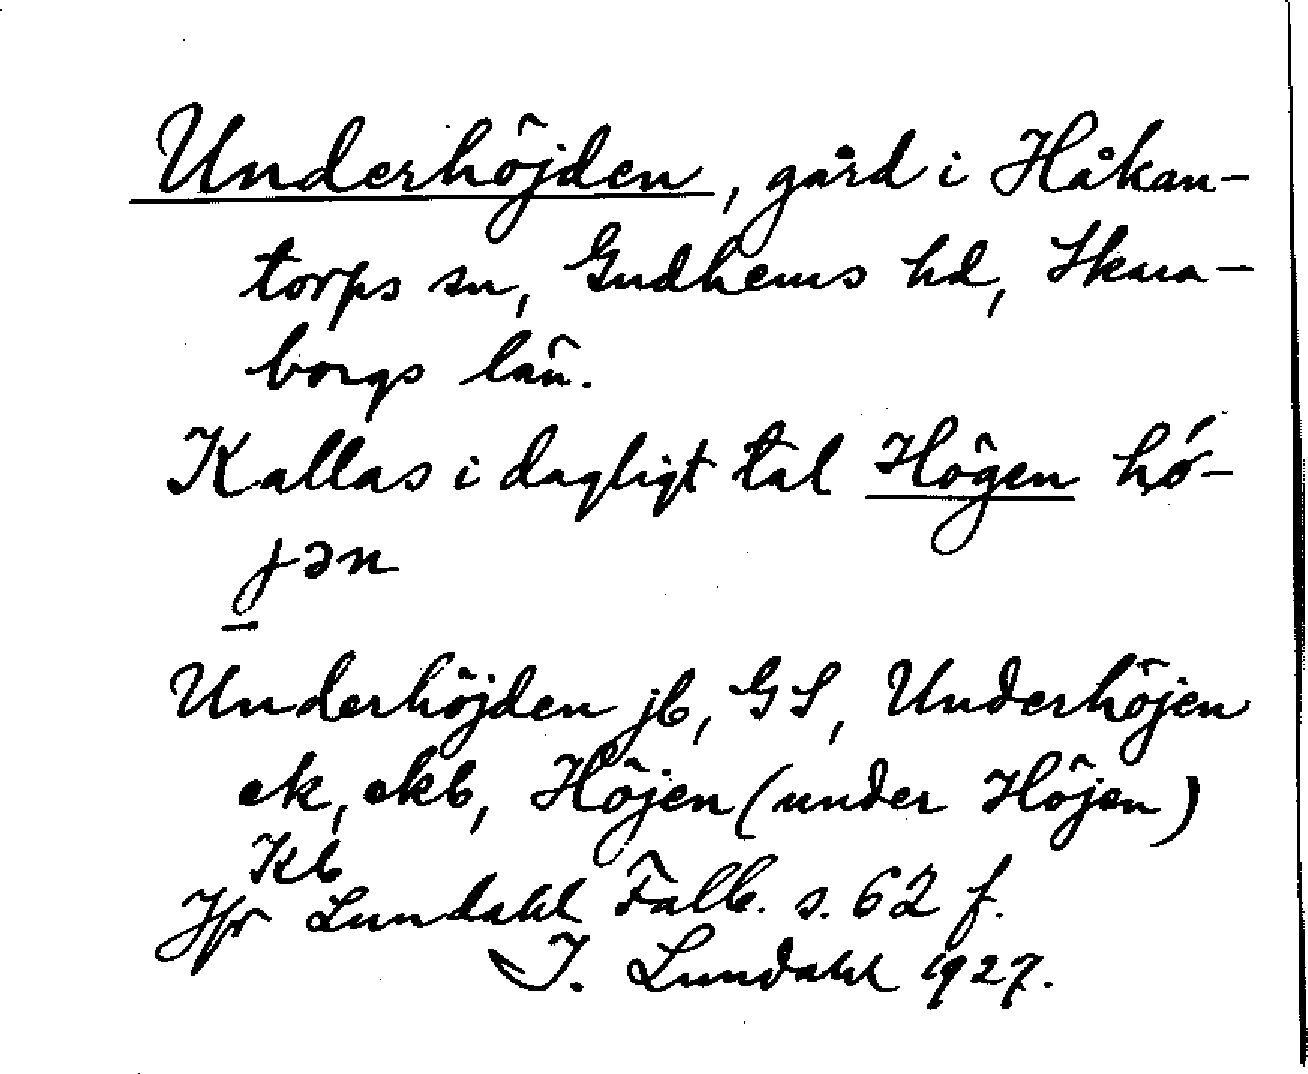 Underhöjden, gård i Håkan-
torps sn, Gudhems hd, Skara-
borgs län.
Kallas i dagligt tal Högen hó-
jən
Underhöjden jb, GS, Underhöjen
ek, ekb, Höjen (under Höjen)
Kb
Jfr Lundahl Falb. s. 62 f.
I. Lundahl 1927.